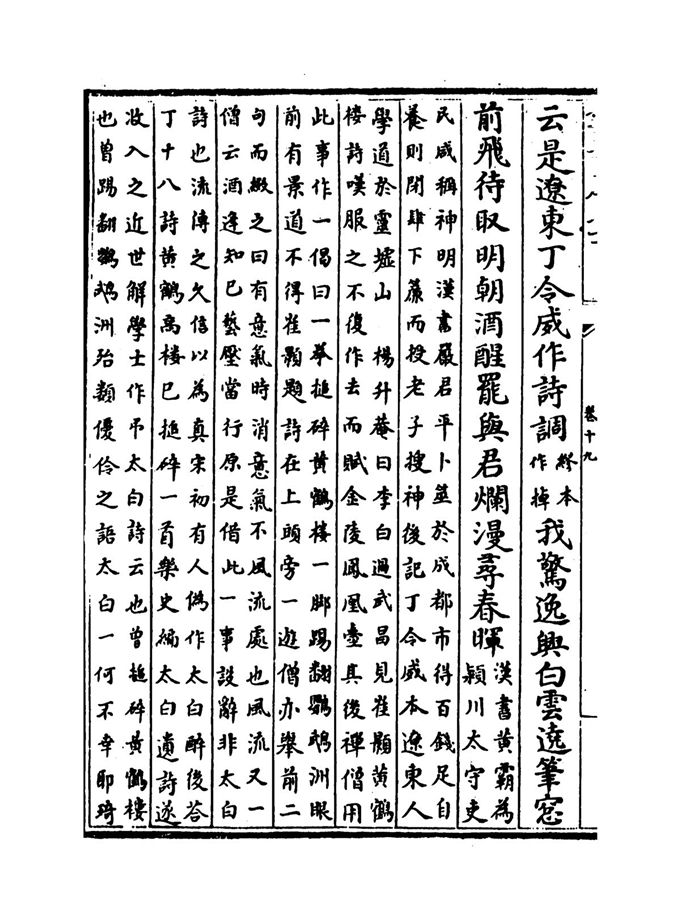 卷十九
云是遼東丁令威作詩調繆本作掉我驚逸興白雲遶筆窓
前飛待取明朝酒醒罷與君爛漫尋春暉漢書黄霸為
潁川太守吏
民咸稱神明漢書嚴君平卜筮於成都市得百錢足自
養則閉肆下簾而授老子搜神後記丁令威本遼東人
學道於靈墟山 楊升菴曰李白過武昌見崔顥黄鶴
樓詩嘆服之不復作去而賦金陵鳳凰臺其後禪僧用
此事作一偈曰一拳搥碎黄鶴樓一脚踢翻鸚鵡洲眼
前有景道不得崔顥題詩在上頭旁一遊僧亦舉前二
句而綴之曰有意氣時消意氣不風流處也風流又一
僧云酒逢知已藝壓當行原是借此一事設辭非太白
詩也流傳之久信以為真宋初有人偽作太白醉後答
丁十八詩黄鶴髙樓已搥碎一首樂史編太白遺詩遂
收入之近世解學士作弔太白詩云也曾搥碎黄鶴樓
也曾踢翻鸚鵡洲殆類優伶之語太白一何不幸耶琦